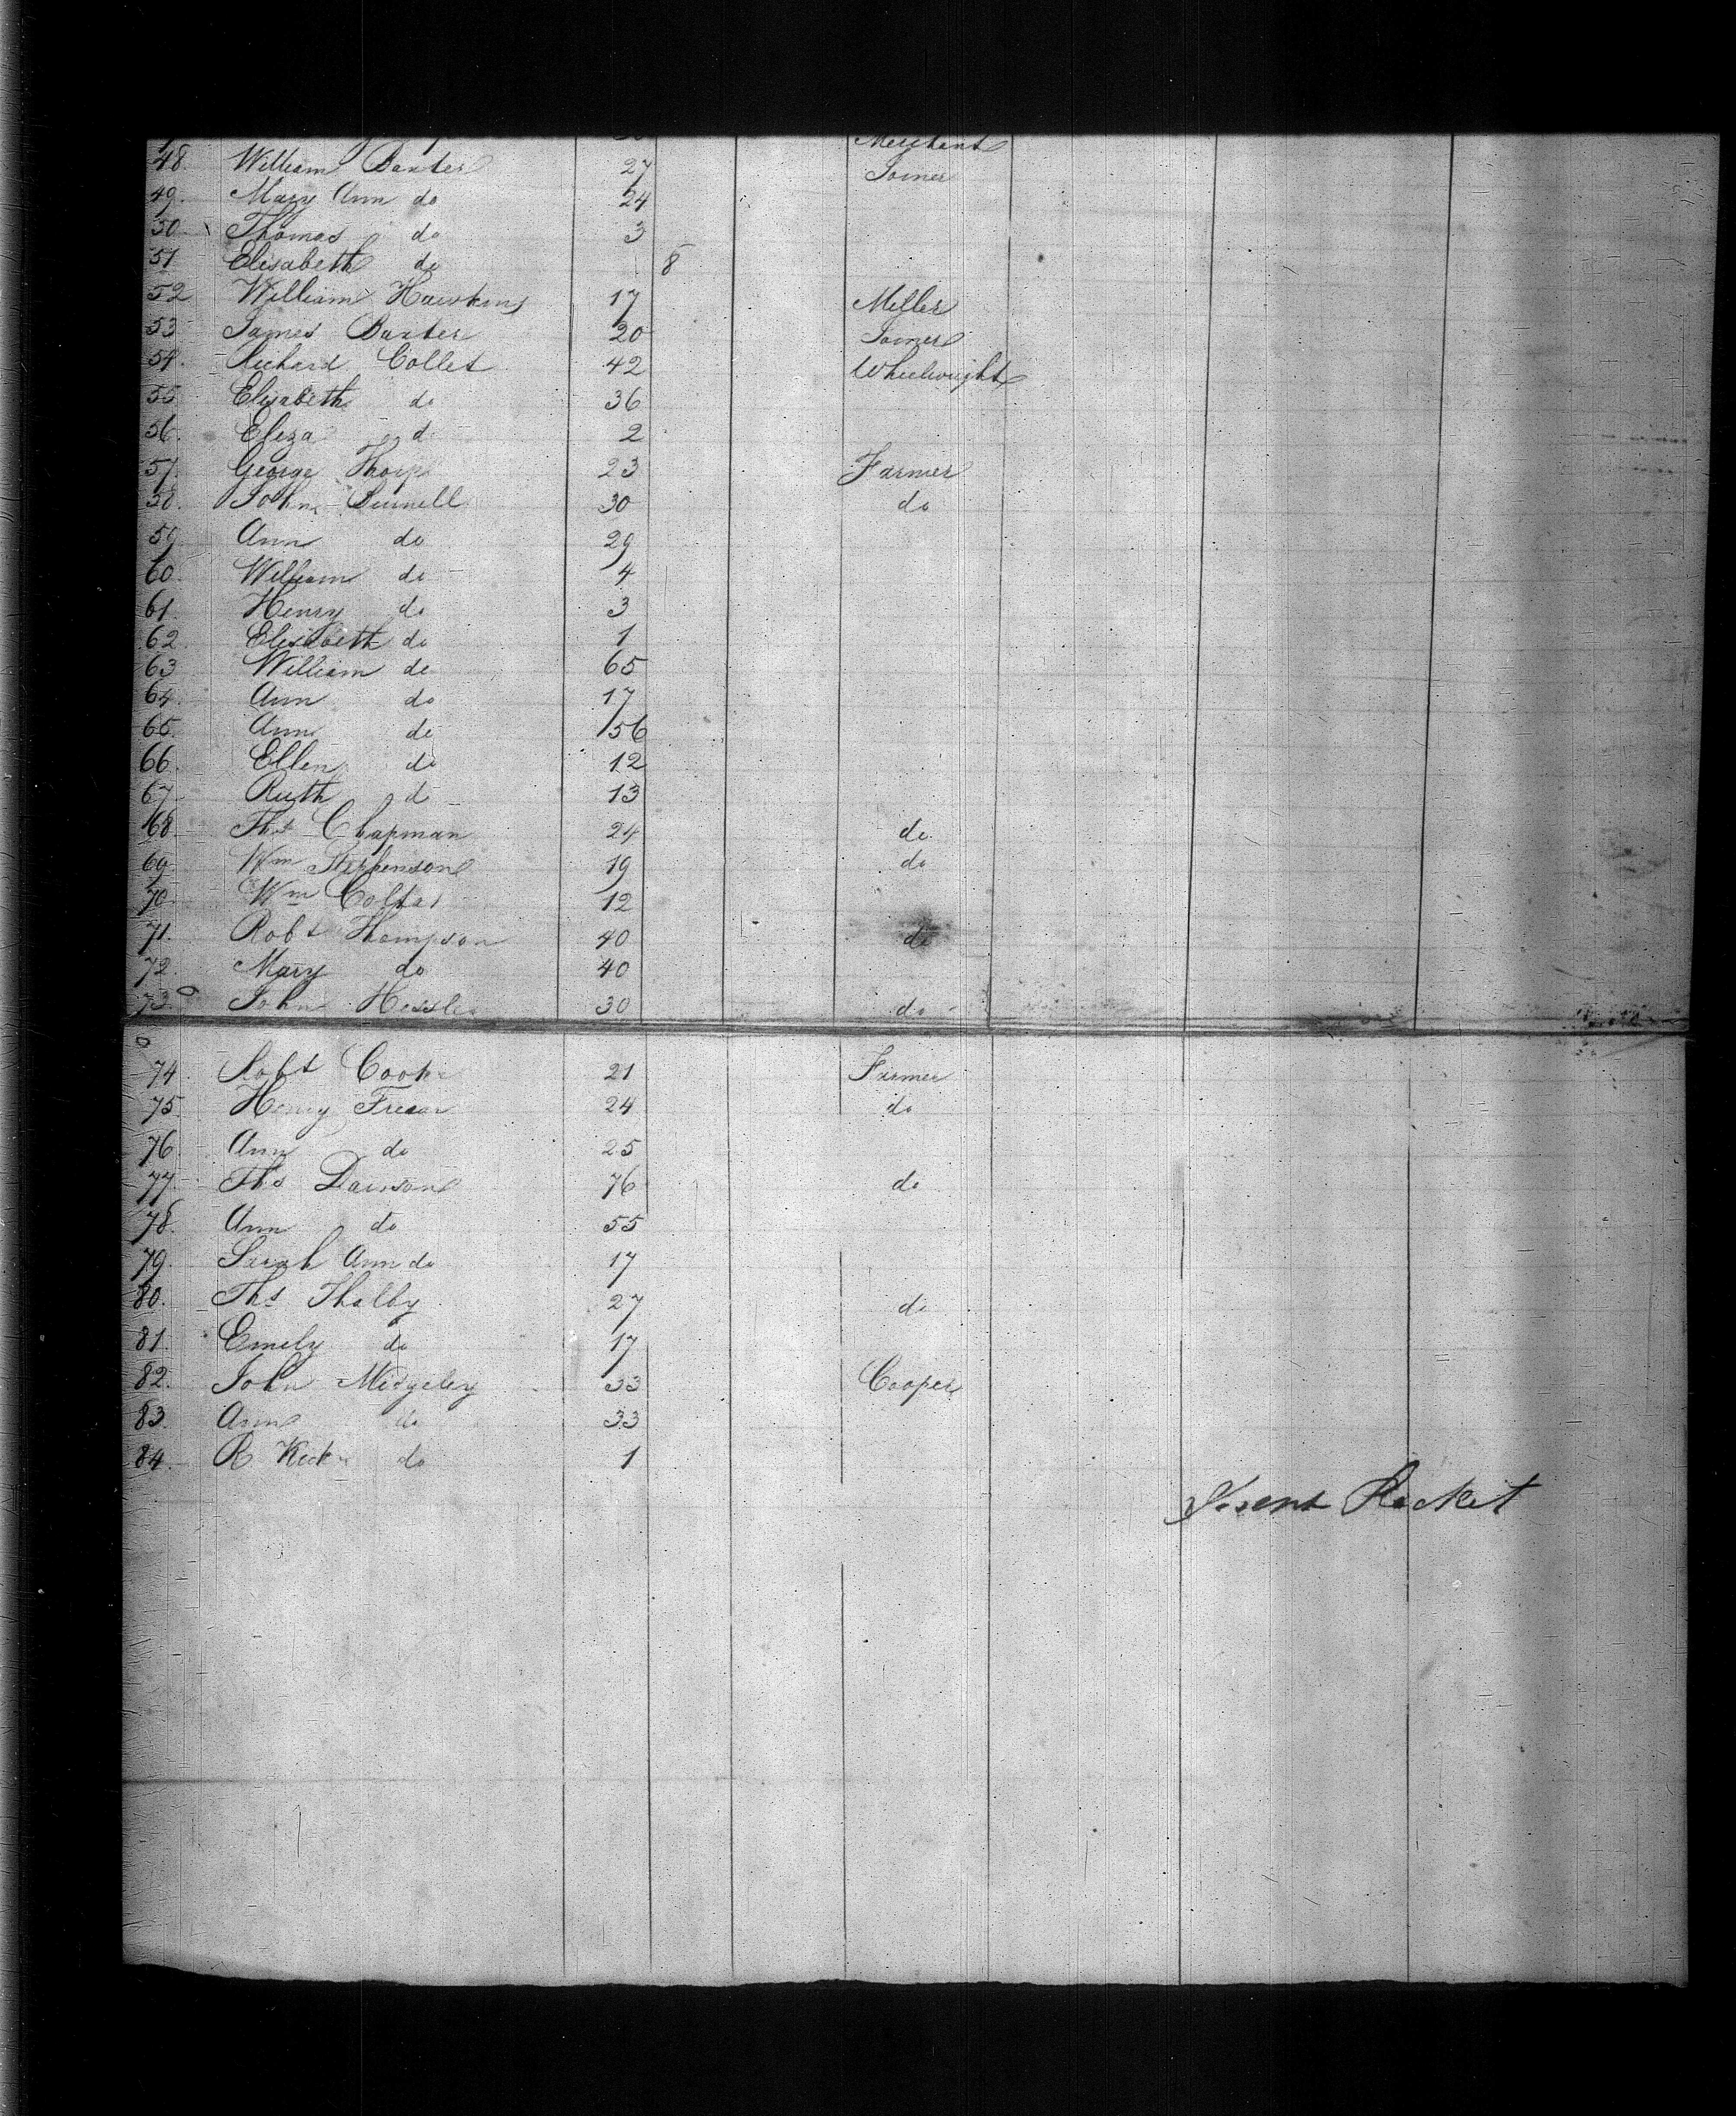 Merchant
48. William Baxter 27 Joiner
49. Mary Ann do 24
50 Thomas do 3
51 Elisabeth do 8
52 William Hawkins 17 Miller
53 James Baxter 20 Joiner
54. Richard Collet 42 Wheelwright
55 Elisabeth do 36
56. Eliza do 2
57. George Thorp 23 Farmer
58. John 30 do
59 Ann do 29
60. William do 4
61. Henry do 3
62 Elisabeth do 1
63 William do 65
64 Ann do 17
65. Ann do 56
66. Ellen do 12
67 Ruth do 13
68 Ths Chapman 24 do
69. Wm Stephenson 19 do
70 Wm 12
71. Robt Thompson 40 do
72. Mary do 40
73. John 30 do
74. Robt Cook 21 Farmer
75. Henry 24 do
76. Ann do 25
77. Ths Dawson 76 do
78. Ann do 55
79. Sarah Ann do 17
80. Ths Thalby 27 do
81. Emily do 17
82. John Midgeley 33 Cooper
83. Ann do 33
84. R do 1